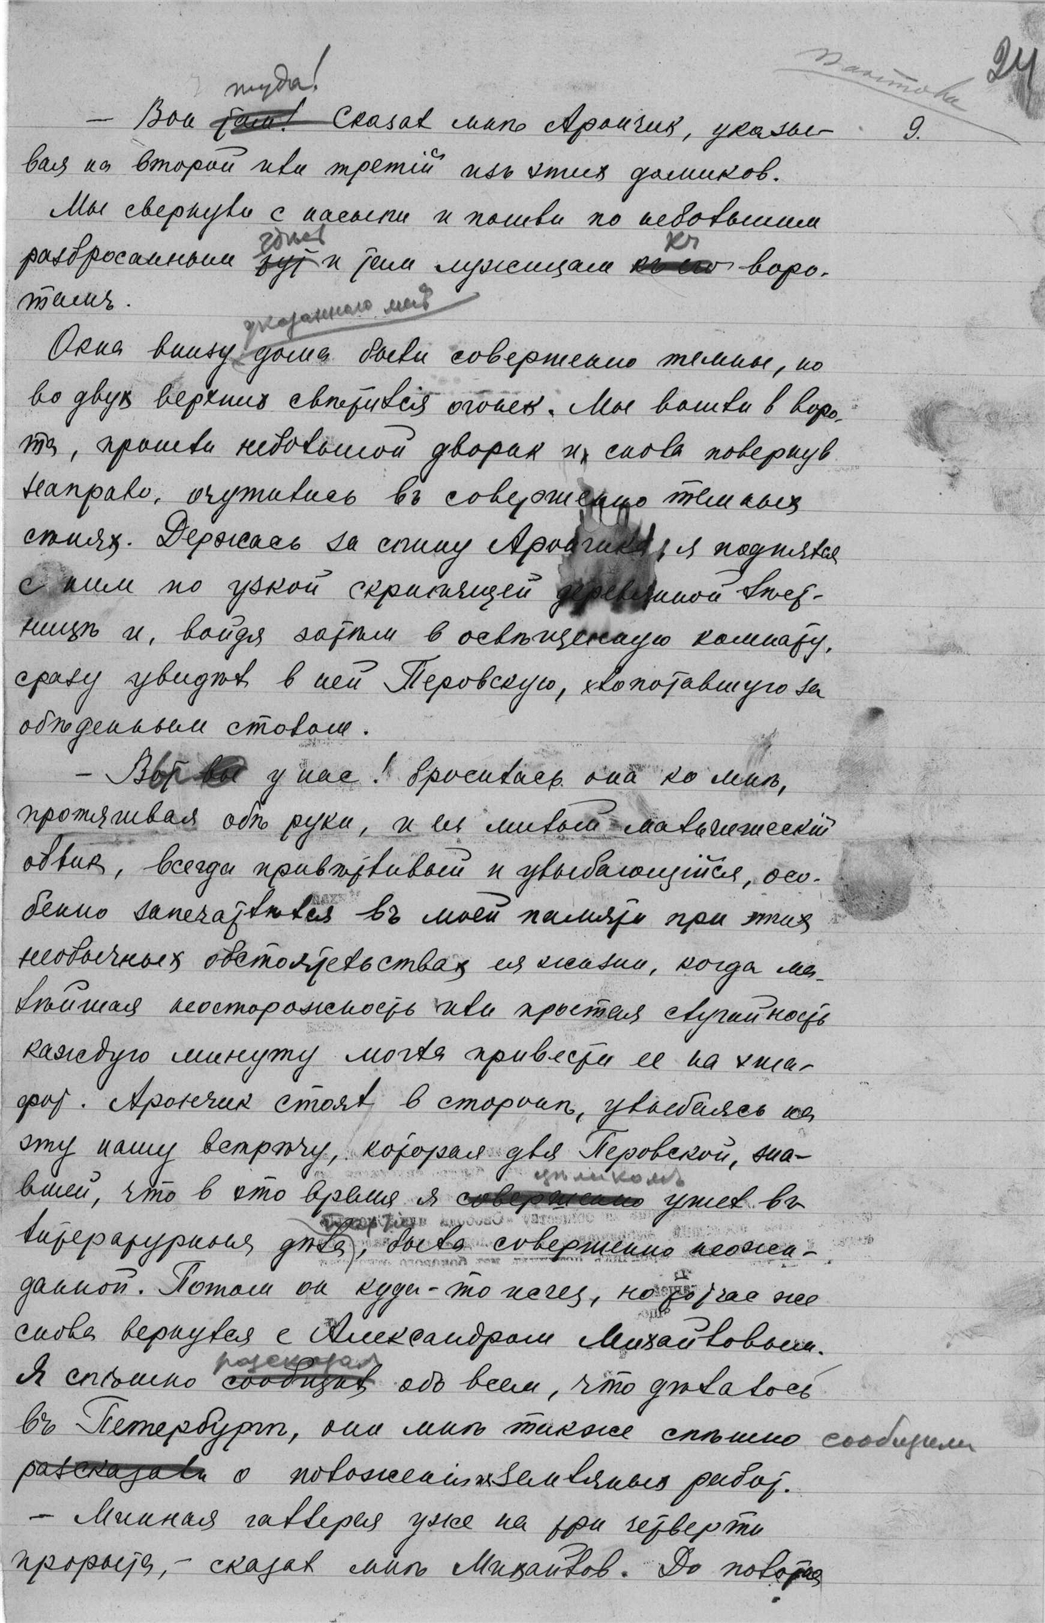 24
9.
туда!
— Вон там! сказал мнѣ Арончик, указы-
вая на второй или третій изъ этих домиков.
Мы свернули с насыпи и пошли по небольшим
здѣсь къ
разбросанным тут и там лужицам къ его воро-
тамъ.
указаннаго мнѣ
Окна внизу дома были совершенно темны, но
во двух верхних свѣтился огонек. Мы вошли в воро-
та, прошли небольшой дворик и, снова повернув
направо, очутились въ совершенно темных
сѣнях. Держась за спину Арончика, я поднялся
с ним по узкой скрипящей деревянной лѣст-
ницѣ и, войдя затѣм в освѣщенную комнату,
сразу увидѣл в ней Перовскую, хлопотавшую за
обѣденным столом.
— Вот вы у нас! бросилась она ко мнѣ,
протягивая обѣ руки, и ея милый мальчишескій
облик, всегда привѣтливый и улыбающійся, осо-
бенно запечатлѣлся въ моей памяти при этих
необычных обстоятельствах ея жизни, когда ма-
лѣйшая неосторожность или простая случайность
каждую минуту могла привести ее на эша-
фот. Арончик стоял в сторонѣ, улыбаясь на
эту нашу встрѣчу, которая для Перовской, зна-
цѣликомъ
вшей, что в это время я совершенно ушел въ
литературныя дѣла, была совершенно неожи-
данной. Потом он куда-то исчез, но тотчас же
снова вернулся с Александром Михайловым.
разсказал
Я спѣшно сообщил обо всем, что дѣлалось
въ Петербургѣ, они мнѣ также спѣшно сообщили
разсказали о положеніи земляных работ.
— Минная галлерея уже на три четверти
прорыта, — сказал мнѣ Михайлов. До полотна